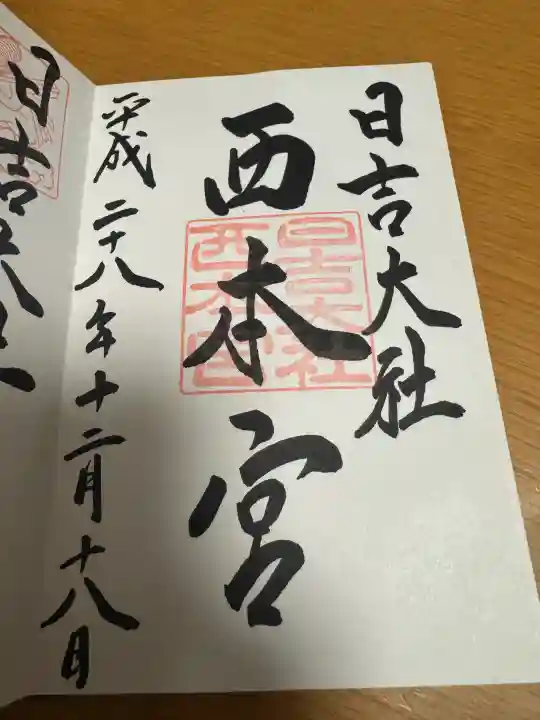 日吉大社
西本宮
日吉大社
西本宮
平成二十八年十二月十八日
日吉